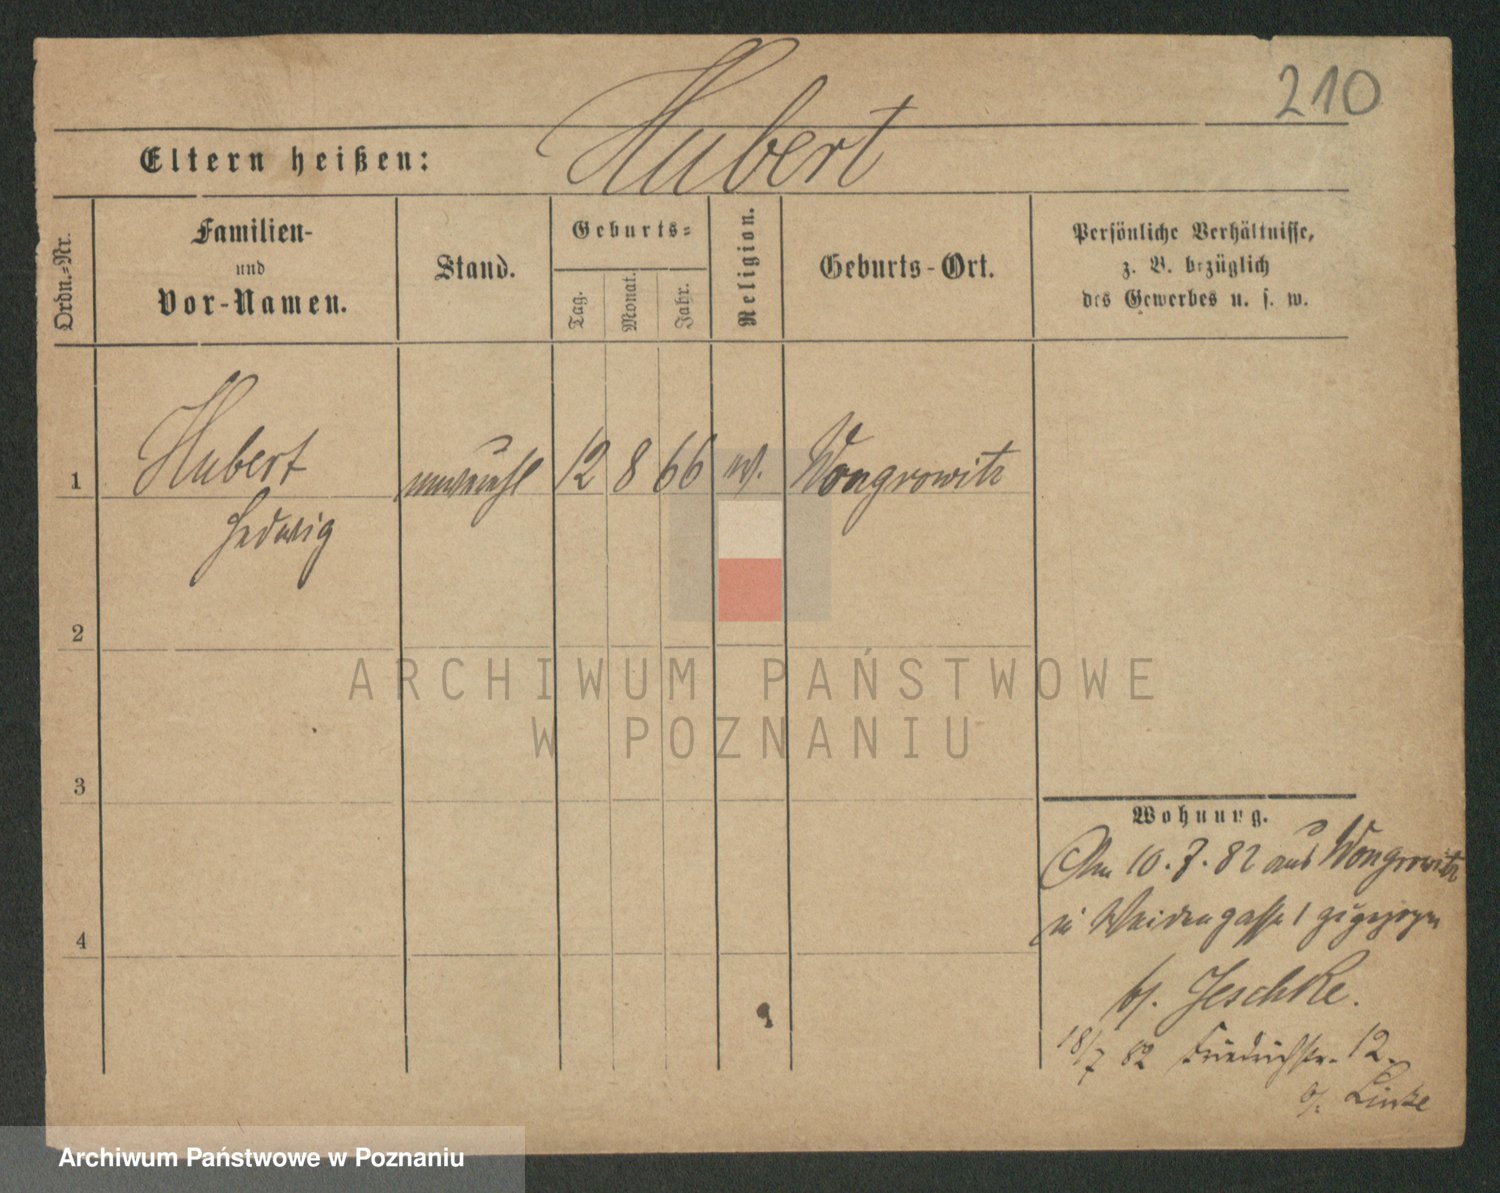 210
Hubert
Eltern heißen:
Ordn.=Nr.
Familien-
und
Vor-Namen.
Stand.
Geburts=
Tag.
Monat.
Jahr.
Religion.
Geburts-Ort.
Persönliche Verhältnisse,
z. B. bezüglich
des Gewerbes u. s. w.
1
Hubert
Hedwig
unverehl
12
8
66
Wongrowitz
2
3
4
Wohnung.
Am 10.7.82 aus Wongrowitz
in Weidengasse 1 zugezogen
b/. Jeschke.
18/7 82 Friedrichstr. 12.
b/. Linke
ARCHIWUM PAŃSTWOWE
W POZNANIU
Archiwum Państwowe w Poznaniu